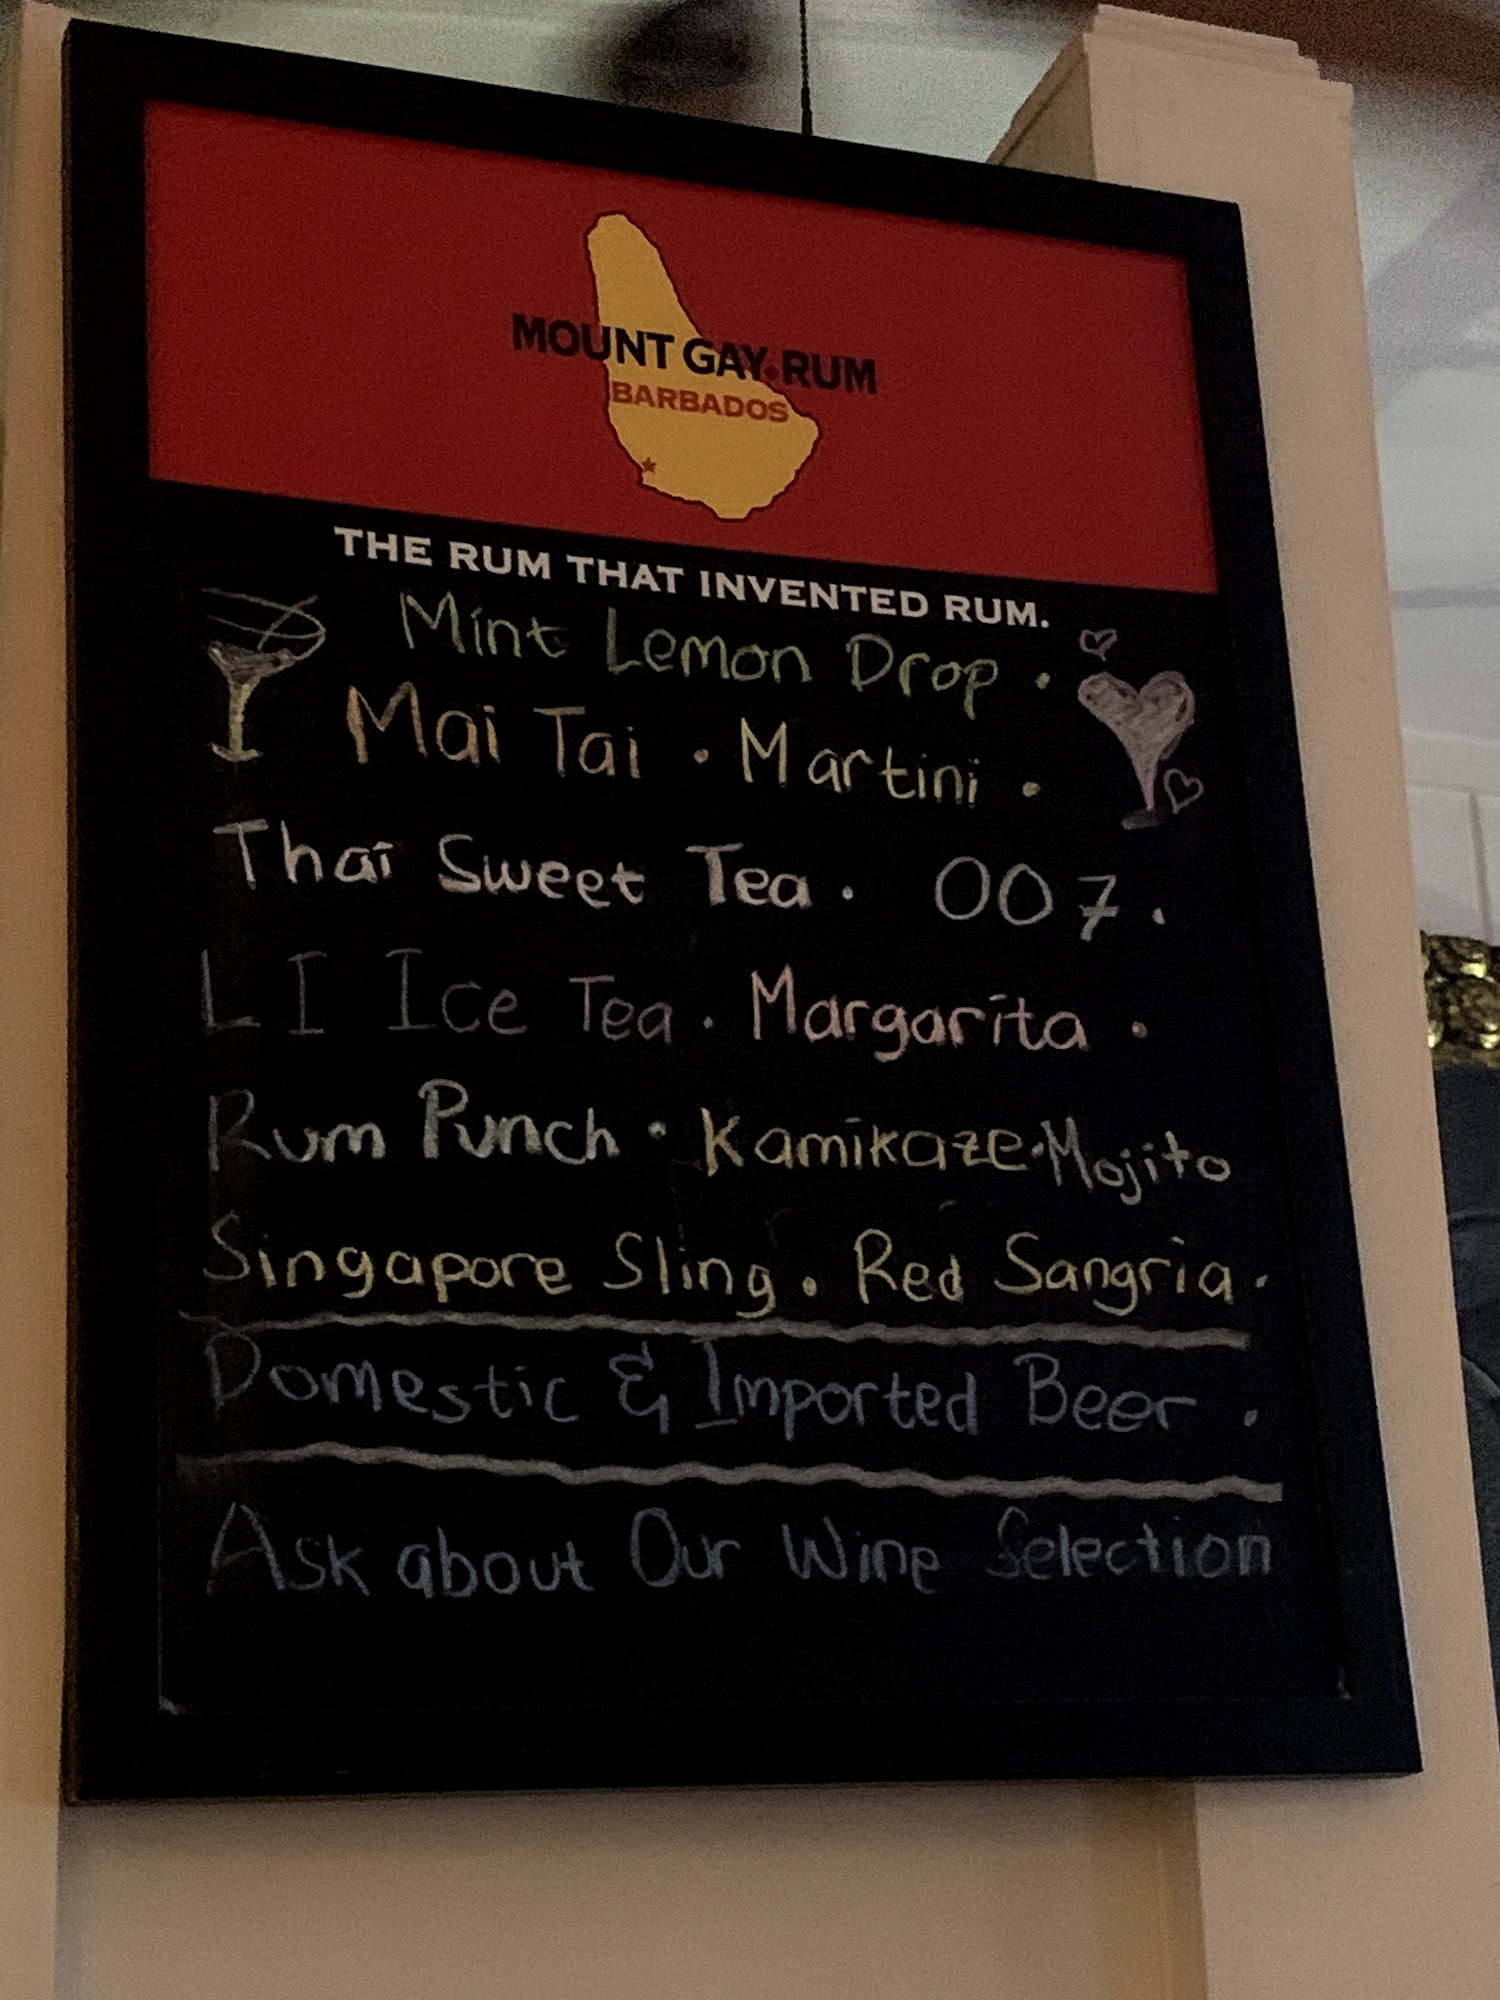 MOUNT GAY RUM
BARBADOS
THE RUM THAT INVENTED RUM.
Mint Lemon Drop •
Mai Tai • Martini •
Thai Sweet Tea • 007 •
L I Ice Tea • Margarita •
Rum Punch • Kamikaze • Mojito
Singapore Sling • Red Sangria •
Domestic & Imported Beer •
Ask about Our Wine Selection